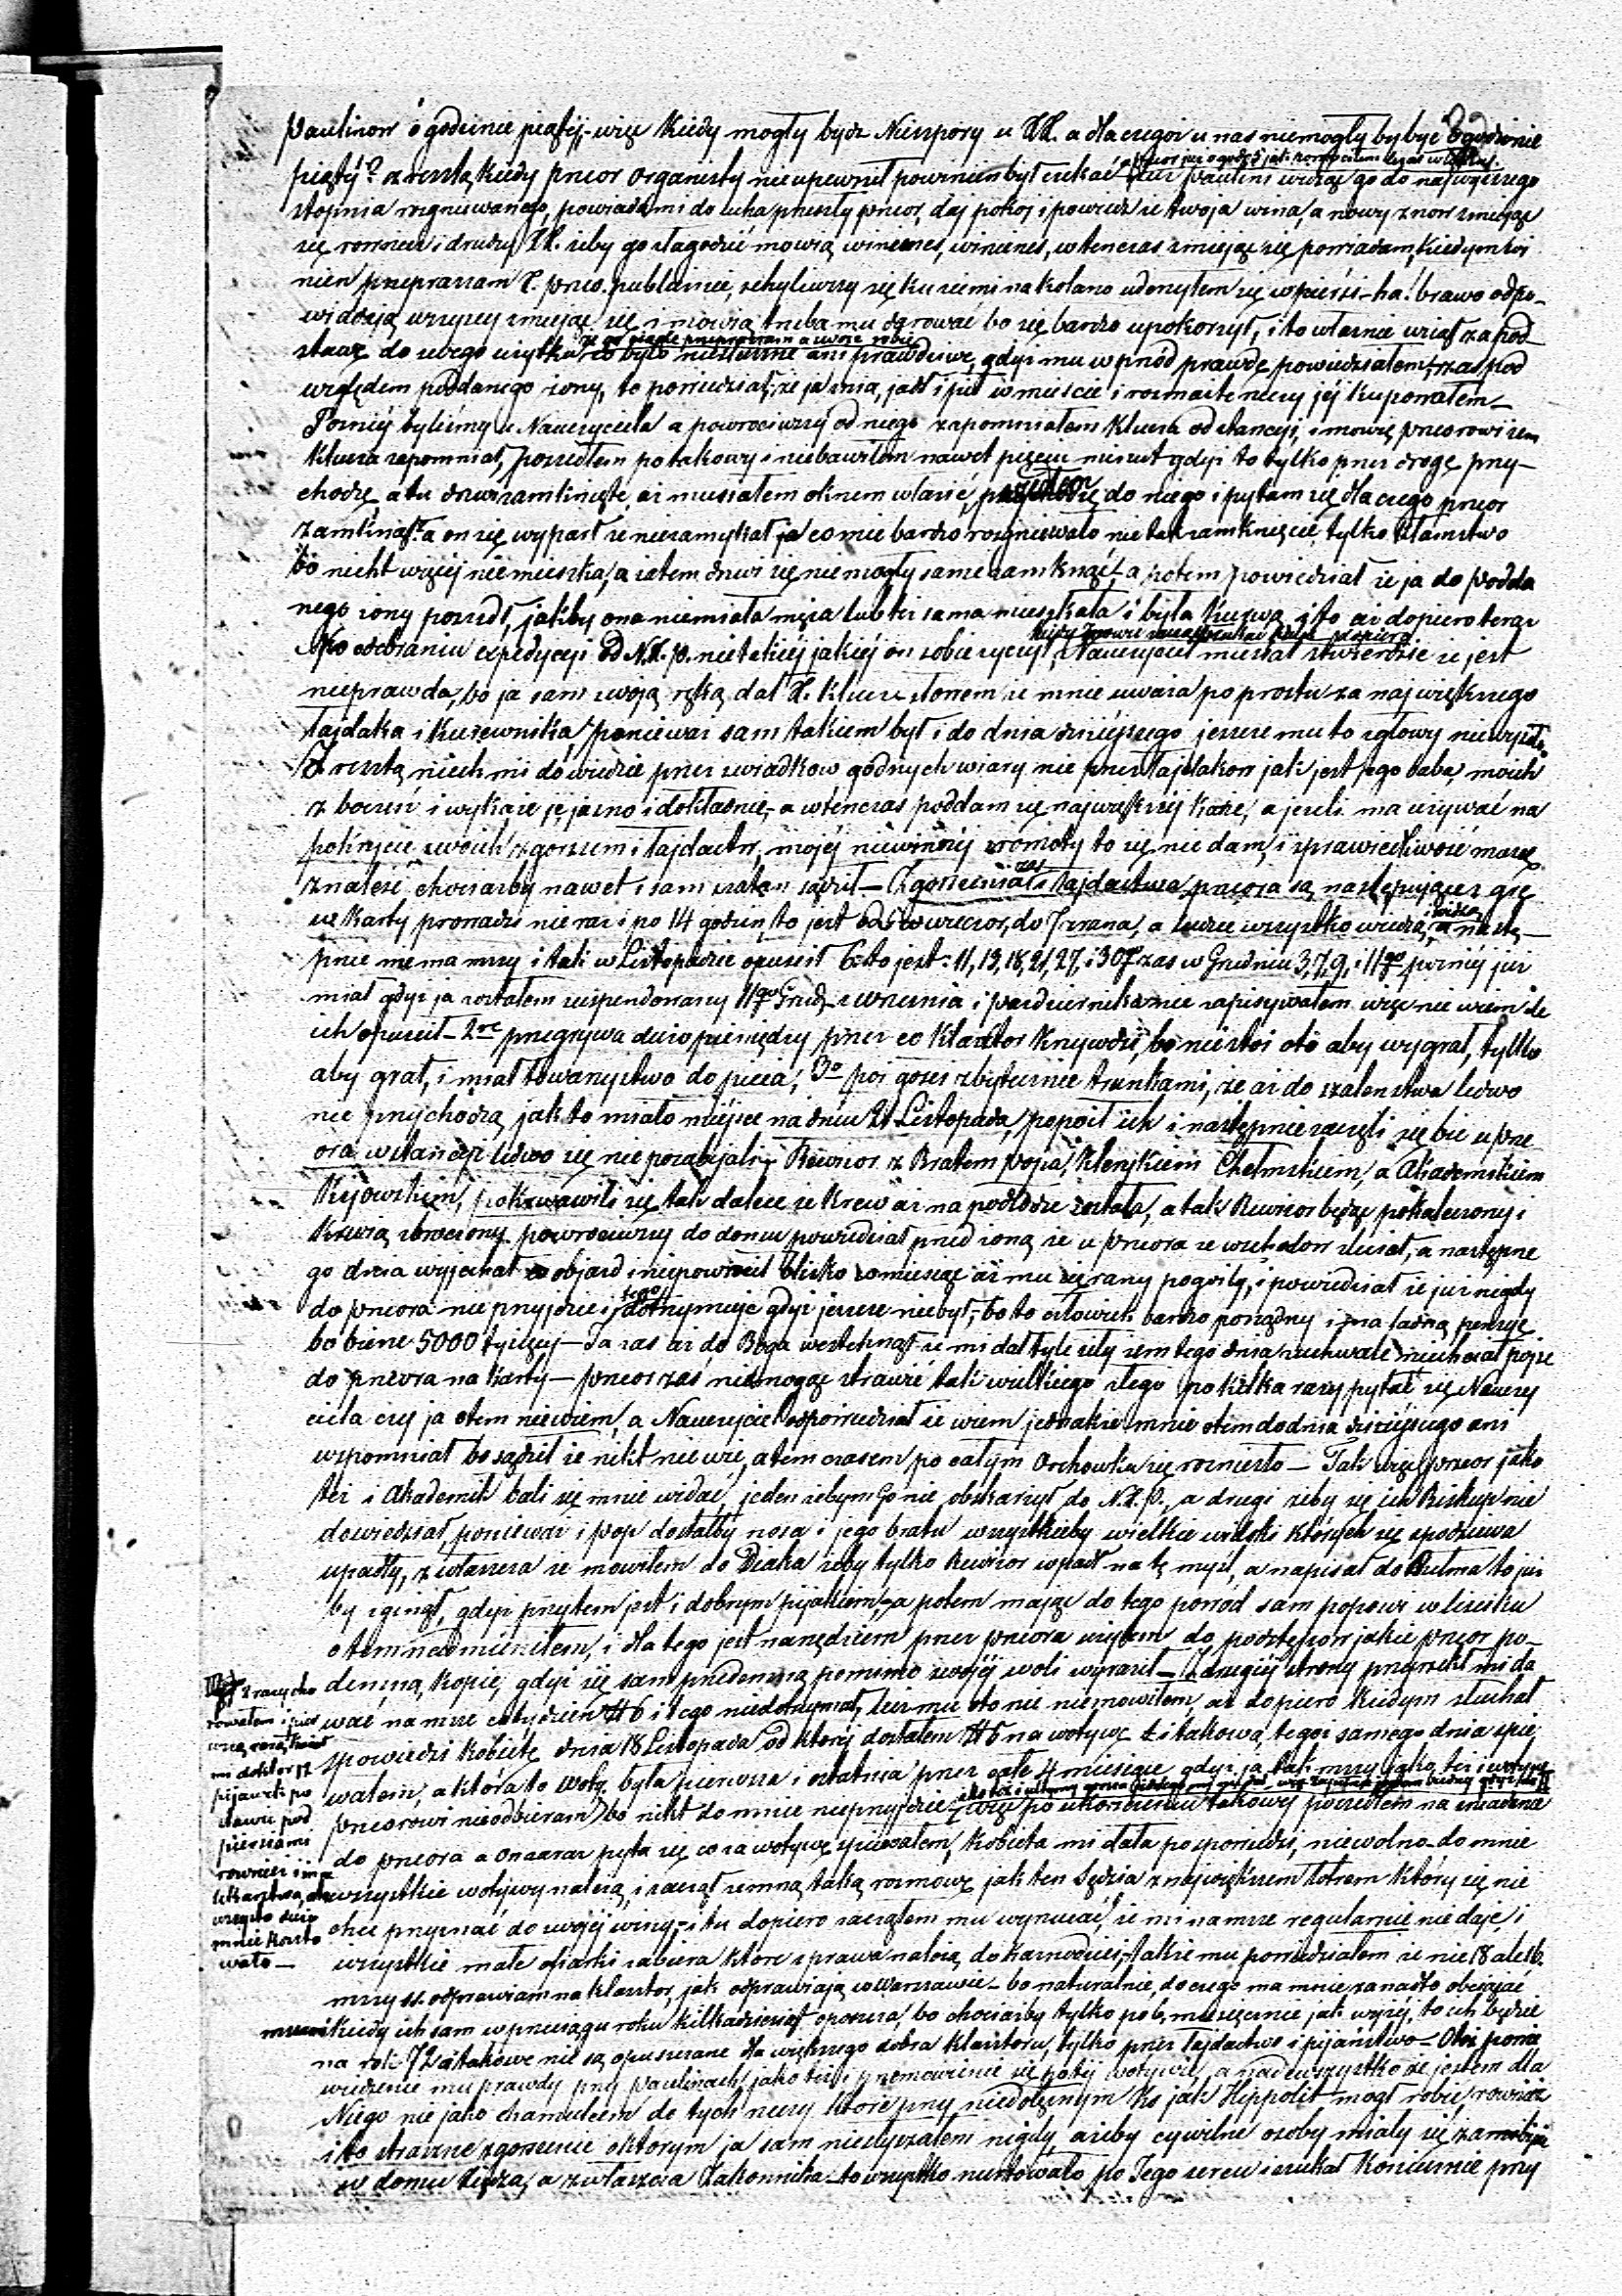 Paulinow o godzinie piątej, więc kiedy mogły bydź Nieszpory u XX. a dla czegoż u nas niemogły by być o godzinie
piątej? zresztą kiedy preor Organisty nie upewnił powinien był czekać
stopnia rozgniewanego, powiada mi do ucha przeszły preor, daj pokoj i powiedz że twoja wina, a nowy znow śmiejąc
się i drudzy XX. żeby go złagodzić mowią winienes, winienes, wtenczas śmiejąc się powiadam, kiedym wi
nien przepraszam X. preo. publicznie, schyliwszy się ku ziemi na kolano uderzyłem się w piersi - ha! brawo odpo-
widają wszyscy śmiejąc się i mowią trzeba mu darować bo się bardzo upokorzył, i to własnie wziął za pod
stawę do swego użytku co było niesłuszne ani prawdziwe, gdyż mu wprzod prawdę powiedziałem, zas pod
względem poddanego żony, to powiedział, że ja z nią jadł i pił w mieście i rozmaite rzeczy jéj kupowałem -
Pozniéj byliśmy u Nauczyciela a powrociwszy od niego zapomniałem klucza od stancyi, i mowię preorowi żem
klucza zapomniał, poszedłem po takowy i niebawiłem nawet pięciu minut gdyż to tylko przez drogę przy-
chodzę, a tu drzwi zamknięte, aż musiałem oknem włazić, do niego i pytam się dla czego preor
zamknął? a on się wyparł że niezamykał co mie bardzo rozgniewało nie tak zamknięcie, tylko kłamstwo
bo nicht więcéj nie mieszka, a zatem drzwi się nie mogły same zamknąć - a potem powiedział że ja do podda
nego żony poszedł, jakby ona niemiała męża lub też sama mieszkała i była kurwą, i to aż dopiero teraz
po odebraniu expedycyi od N.X.P. nie takiéj jakiéj on sobie życzył, Nauczyciel musiał stwierdzić że jest
nieprawda, bo ja sam swoją ręką dał X. klucz słowem że mnie uważa po prostu za największego
łajdaka i kurewnika, ponieważ sam takiem był i do dnia dzisiéjszego jeszcze mu to z głowy nie wyszło
Zresztą niech mi dowiedzie przez swiadkow godnych wiary nie przez łajdakow jak jest jego baba, moich
zboczeń i wykaże je jasno i dokładnie, a wtenczas poddam się największéj karze, a jezeli ma używać na
pokrycie swoich zgorszeń i łajdactw, mojéj niewinnéj sromoty to się nie dam, i sprawiedliwość muszę
znaleść chociażby nawet i sam szatan sądził - Zgorszenia zas i łajdactwa preora są następujące: grę
w karty prowadzi nie raz i po 14 godzin, to jest od 5 wieczor, do 7 zrana, a ludzie wszystko wiedzą, a nastę-
pnie niema mszy i tak w Listopadzie opuscił 6. to jest: 11, 13, 18, 21, 27, i 30 zas w Grudniu 3, 7, 9, i 11go pozniéj już
miał gdyż ja zostałem suspendowany 11go Grud. z wrzesnia i pazdziernika nie zapisywałem więc nie wiem ile
ich opuscił - 2re przegrywa duzo pieniędzy przez co klasztor krzywdzi, bo nie stoi o to aby wygrał, tylko
aby grał, i miał towarzystwo do picia; 3o poi gosci zbytecznie trunkami, że aż do szalenstwa ledwo
nie przychodzą, jak to miało miejsce na dniu 21 Listopada, popoił ich i następnie zaczęli się bić u pre
ora w stancyi ledwo się nie pozabijali, Rewizor z Bratem popa, klerykiem Chełmskiem, a Akademikiem
Kijowskim, pokrwawili się tak dalece że krew aż na podłodze została, a tak Rewizor będąc pokaleczony i
krwią zbroczony powrociwszy do domu powiedział przed żoną że u preora ze wschodow zleciał, a następne
go dnia wyjechał na objazd i niepowrocił blisko miesiąc aż mu się rany pogoiły, i powiedział że już nigdy
do preora nie przyjdzie i tego dotrzymuje gdyż jeszcze niebył; bo to człowiek bardzo porządny i ma ładną pensję
bo bierze 5000 tysięcy - Ja zas aż do Boga westchnął że mi dał tyle siły żem tego dnia niechciał pojsc
do preora na karty - preor zaś niemogąc strawić tak wielkiego złego po kilka razy pytał się Nauczy
ciela czy ja o tem niewiem, a Nauczyciel odpowiedział że wiem jednakże mnie o tem do dnia dzisiéjszego ani
wspomniał bo sądził że nikt nie wie, a tem czasem po całym Orchowku się rozniesło - Tak więc preor jako
też i Akademik bali się mnie widać, jeden żebym Go nie obskarżył do N.X.P., a drugi żeby się ich Biskup nie
dowiedział, ponieważ i pop dostałby nosa i jego bratu wszystkieby wielkie widoki których się spodziewa
upadły, zwłaszcza że mowiłem do Diaka żeby tylko Rewizor wpadł na tę mysl, a napisał do Chełma to już
by zginął, gdyż przytem jest i dobrym pijakiem, a potem mając do tego powod sam popowi w lisciku
o tem nadmieniłem, i dla tego jest narzędziem przez preora użytem do podstępow jakie preor po-
demną kopie, gdyż się sam przedemną pomimo swojéj woli wyraził - Z drugiéj strony przyrzekł mi da
wać na msze co tydzien # 6 i tego niedotrzymał, lecz mu o to nic niemowiłem, aż dopiero kiedym słuchał
spowiedzi kobietę dnia 18 Listopada od ktorej dostałem # 6 na wotywę i takową tegoż samego dnia spie
wałem, a która to woty. była pierwsza i ostatnia przez całe 4 miesiące, gdyż ja tak mszy jako też i wotywę
preorowi nieodbieram, bo nikt do mnie nieprzyjdzie, więc po ukończeniu takowéj poszedłem na sniadanie
do preora a on zaraz pyta się co za wotywę spiewałem, kobieta mi dała po spowiedzi, niewolno - do mnie
wszystkie wotywy należą, i zaczął zemną taką rozmowę jak ten Sędzia z największem łotrem który się nie
chce przyznać do swojéj winy, i tu dopiero zacząłem mu wyrzucać, że mi na msze regularnie nie daje i
wszystkie małe ofiarki zabiera ktore z prawa należą do kaznodziei, także mu powiedziałem że nie 18 ale 16.
mszy ss. odprawiam na klasztor, jak odprawiają w Warszawie - bo naturalnie, do czego ma mnie zanadto obciążać
kiedy ich sam w przeciągu roku kilkadziesiąt opuszcza, bo chociażby tylko po 6, miesięcznie jak wyzéj, to ich będzie
na rok 72 a takowe nie są opuszczane dla większego dobra klasztoru, tylko przez łajdactwo i pijaństwo - Otoż powie
wiedzenie mu prawdy przy Paulinach, jako też i przemowienie się po téj wotywie, a nadewszystko że jestem dla
Niego nie jako hamulcem do tych rzeczy ktore przy niedołężnym Ks. jak Hippolit mogł robic, rownież
i to straszne zgorszenie o ktorym ja sam nie słyszałem nigdy, ażeby cywilne osoby miały się
w domu Księdza, a zwłaszcza Zakonnika - to wszystko nurtowało po Jego sercu i szukał koniecznie przy
rowałem i pier
mi doktor 12
pijawek po
stawić pod
piersiami
rownież i
lekarstwa,
wszysto
mnie koszto
wało -